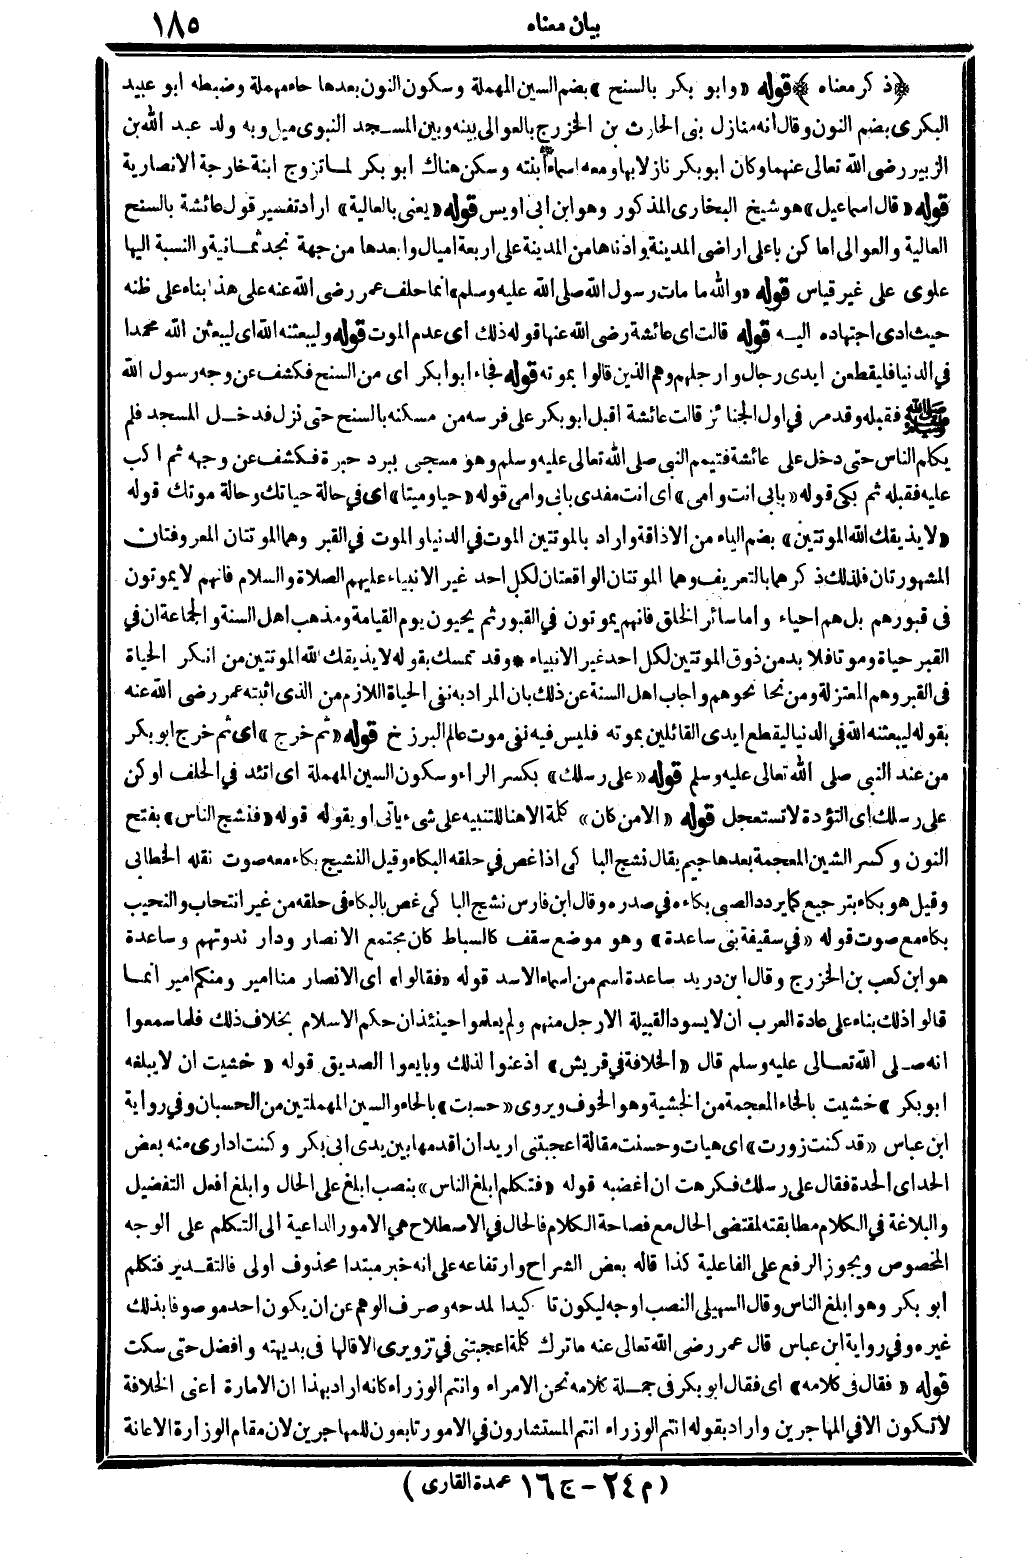 بيان معناه ١٨٥
﴿ ذكر معناه ﴾ قوله «وابو بكر بالسنح» بضم السين المهملة وسكون النون بعدها حاء مهملة وضبطه ابو عبيد
البكرى بضم النون وقال أنه منازل بنى الحارث بن الخزرج بالعوالى بينه وبين المسجد النبوى ميل وبه ولد عبد الله بن
الزبير رضى الله تعالى عنهما وكان ابو بكر نازلا بها ومعه اسماء أبنته وسكن هناك ابو بكر لما تزوج ابنة خارجة الانصارية
قوله «قال اسماعيل» هو شيخ البخارى المذكور وهو ابن ابى اويس قوله «يعنى بالعالية» اراد تفسير قول عائشة بالسنح
العالية والعوالى اما كن باعلى اراضى المدينة وادناها من المدينة على اربعة اميال وابعدها من جهة نجد ثمانية والنسبة اليها
علوى على غير قياس قوله «والله ما مات رسول الله صلى الله عليه وسلم» انما حلف عمر رضى الله عنه على هذا بناء على ظنه
حيث ادى اجتهاده اليه قوله قالت اى عائشة رضى الله عنها قوله ذلك اى عدم الموت قوله وليبعثنه الله اى ليبعثن الله محمدا
في الدنيا فليقطعن ايدى رجال وارجلهم وهم الذين قالوا بموته قوله فجاء ابوا بكر اى من السنح فكشف عن وجه رسول الله
صلى الله عليه وسلم فقبله وقد مر في اول الجنائز قالت عائشة اقبل ابو بكر على فرسه من مسكنه بالسنح حتى نزل فدخل المسجد فلم
يكلم الناس حتى دخل على عائشة فتيمم النبى صلى الله تعالى عليه وسلم وهو مسجى ببرد حبرة فكشف عن وجهه ثم اكب
عليه فقبله ثم بكى قوله «بابى انت وامى» اى انت مفدى بابى وامى قوله «حيا وميتا» اى في حالة حياتك وحالة موتك قوله
«لا يذيقك الله الموتتين» بضم الياء من الاذاقة واراد بالموتتين الموت في الدنيا والموت في القبر وهما الموتتان المعروفتان
المشهورتان فلذلك ذكرهما بالتعريف وهما الموتتان الواقعتان لكل احد غير الانبياء عليهم الصلاة والسلام فانهم لا يموتون
فى قبورهم بل هم احياء وأما سائر الخلق فانهم يموتون في القبور ثم يحيون يوم القيامة ومذهب اهل السنة والجماعة ان في
القبر حياة وموتا فلا بد من ذوق الموتتين لكل احد غير الانبياء * وقد تمسك بقوله لا يذيقك الله الموتتين من انكر الحياة
فى القبر وهم المعتزلة ومن نحا نحوهم واجاب اهل السنة عن ذلك بان المراد به نفى الحياة اللازم من الذى اثبته عمر رضى الله عنه
بقوله ليبعثنه الله في الدنيا ليقطع ايدى القائلين بموته فليس فيه نفى موت عالم البرزخ قوله «ثم خرج» اى ثم خرج ابو بكر
من عند النبى صلى الله تعالى عليه وسلم قوله «على رسلك» بكسر الراء وسكون السين المهملة اى اتئد في الحلف او كن
على رسلك اى التؤدة لا تستعجل قوله «الا من كان» كلمة الا هنا للتنبيه على شىء يأتى او يقوله قوله «فنشج الناس» بفتح
النون وكسر الشين المعجمة بعدها جيم يقال نشج الباكى اذا غص في حلقه البكاء وقيل النشيج بكاء معه صوت نقله الخطابى
وقيل هو بكاء بترجيع كما يردد الصبى بكاءه في صدره وقال ابن فارس نشج الباكى غص بالبكاء فى حلقه من غير انتحاب والنحيب
بكاء مع صوت قوله «في سقيفة بنى ساعدة» وهو موضع سقف كالسباط كان مجتمع الانصار ودار ندوتهم وساعدة
هو ابن كعب بن الخزرج وقال ابن دريد ساعدة اسم من اسماء الاسد قوله «فقالوا» اى الانصار منا امير ومنكم امير انما
قالوا ذلك بناء على عادة العرب ان لا يسود القبيلة الا رجل منهم ولم يعلموا حينئذ ان حكم الاسلام بخلاف ذلك فلما سمعوا
انه صلى الله تعالى عليه وسلم قال «الخلافة في قريش» اذعنوا لذلك وبايعوا الصديق قوله «خشيت ان لا يبلغه
ابو بكر» خشيت بالخاء المعجمة من الخشية وهو الخوف ويروى «حسبت» بالحاء والسين المهملتين من الحسبان وفي رواية
ابن عباس «قد كنت زورت» اى هيات وحسنت مقالة اعجبتنى اريد ان اقدمها بين يدى ابى بكر وكنت ادارى منه بعض
الحد اى الحدة فقال على رسلك فكرهت ان اغضبه قوله «فتكلم ابلغ الناس» بنصب ابلغ على الحال وابلغ أفعل التفضيل
والبلاغة في الكلام مطابقته لمقتضى الحال مع فصاحة الكلام فالحال في الاصطلاح هي الامور الداعية الى التكلم على الوجه
المخصوص ويجوز الرفع على الفاعلية كذا قاله بعض الشراح وارتفاعه على انه خبر مبتدا محذوف اولى فالتقدير فتكلم
ابو بكر وهو ابلغ الناس وقال السهيلى النصب اوجه ليكون تاكيدا لمدحه وصرف الوهم عن ان يكون احد موصوفا بذلك
غيره وفي رواية ابن عباس قال عمر رضى الله تعالى عنه ما ترك كلمة اعجبتنى في تزويرى الا قالها فى بديهته وافضل حتى سكت
قوله «فقال فى كلامه» اى فقال ابو بكر فى جملة كلامه نحن الامراء وانتم الوزراء كانه اراد بهذا ان الامارة اعنى الخلافة
لا تكون الا في المهاجرين واراد بقوله انتم الوزراء انتم المستشارون في الامور تابعون للمهاجرين لان مقام الوزارة الاعانة
(م ٢٤ - ج ١٦ عمدة القارى)